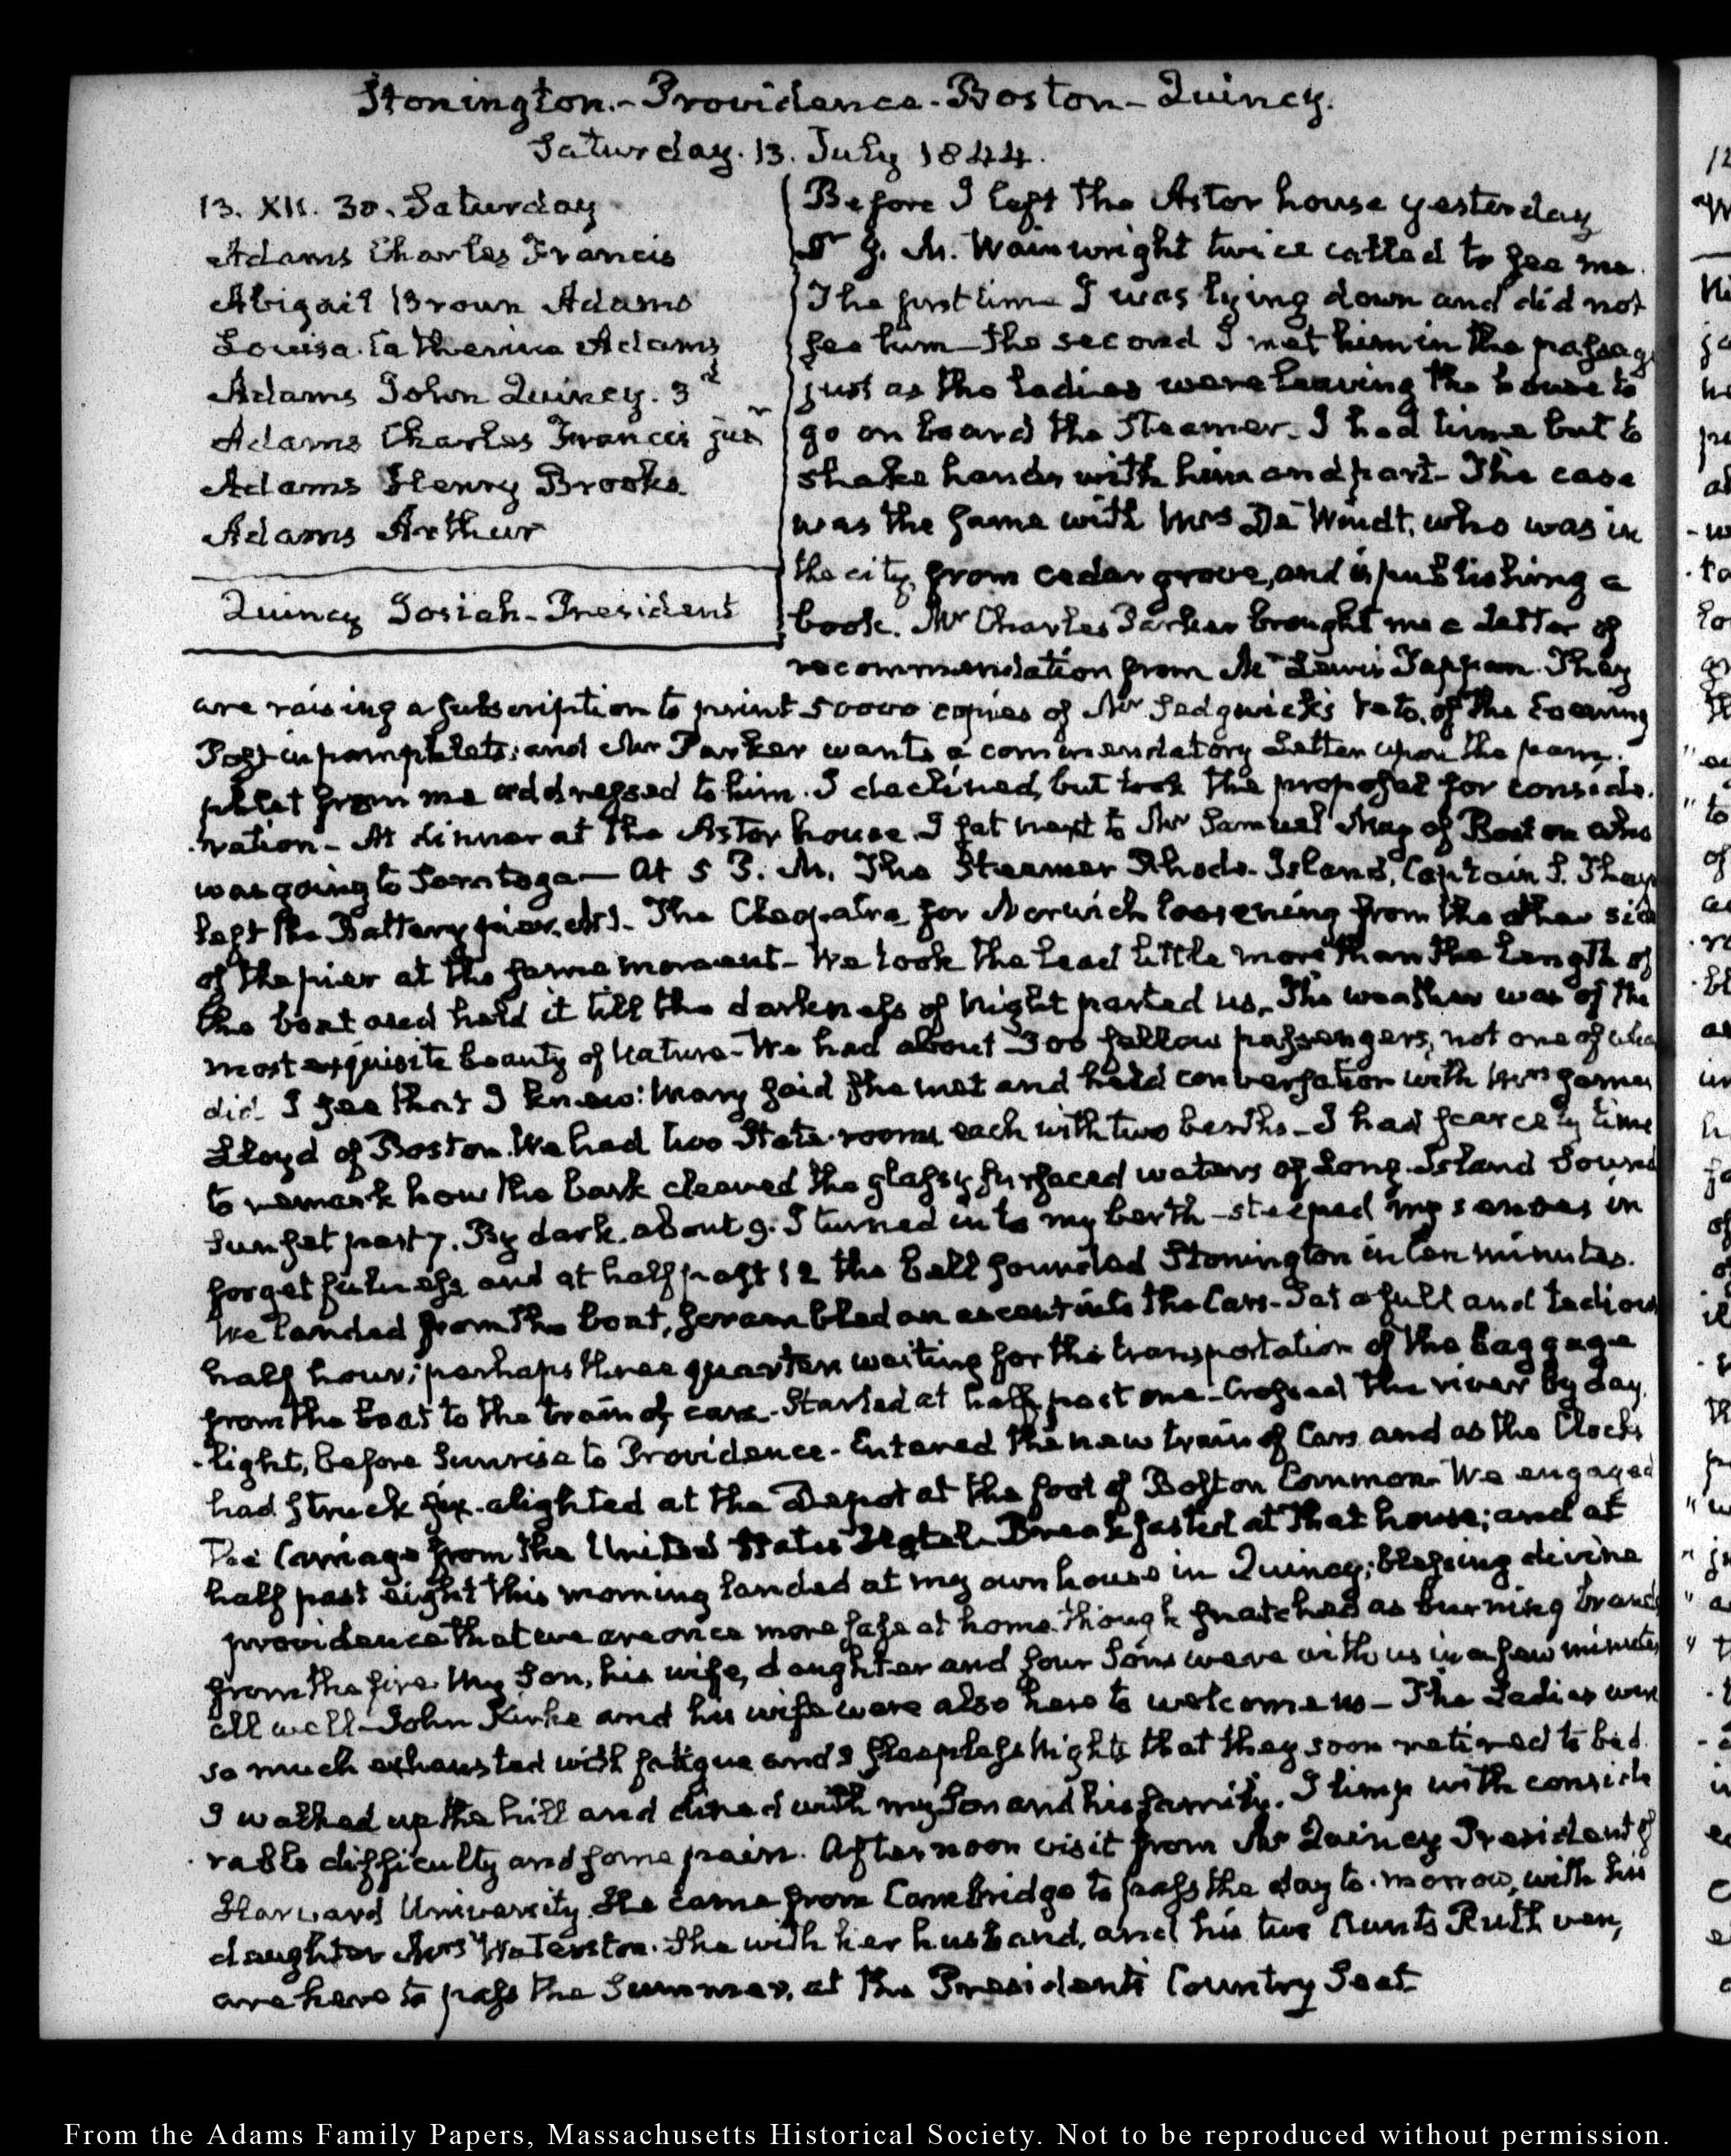 Stonington.- Providence - Boston - Quincy.
Saturday. 13. July 1844.
13. XII. 30. Saturday
Adams Charles Francis
Abigail Brown Adams
Louisa Catherine Adams
Adams John Quincy. 3d
Adams Charles Francis junr
Adams Henry Brooks
Adams Arthur
Quincy Josiah - President
Before I left the Astor house yesterday
Dr J. M. Wainwright twice called to see me.
The first time I was lying down and did not
see him - the second I met him in the passage
just as the ladies were leaving the house to
go on board the Steamer. I had time but to
shake hands with him and part - The case
was the same with Mrs De Windt, who was in
the city from cedar grove, and is publishing a
book. Mr Charles Parker brought me a Letter of
recommendation from Mr Lewis Tappan. They
are raising a subscription to print 50000 copies of Mr Sedgwick's of the Evening
Post in pamphlets; and Mr Parker wants a commendatory Letter upon the pam-
phlet from me addressed to him. I declined, but took the proposal for conside-
-ration - At dinner at the Astor house I sat next to Mr Samuel May of Boston who
was going to Saratoga — At 5 P. M. The Steamer Rhode-Island, Captain S. Thayer
left the Battery pier, N. 1. The Cleopatra for Norwich loosening from the other side
of the pier at the same moment - We took the lead little more than the length of
the boat and held it till the darkness of Night parted us, The weather was of the
most exquisite beauty of Nature - We had about 300 fellow passengers, not one of whom
did I see that I knew: Mary said she met and held conversation with Mrs James
Lloyd of Boston. We had two State-rooms each with two berths - I had scarcely time
to remark how the bark cleaved the glassy surfaced waters of Long-Island Sound
Sunset past 7. By dark, about 9. I turned in to my berth - steeped my senses in
forgetfulness, and at half past 12 the bell sounded Stonington in ten minutes.
We landed from the boat, scrambled an ascent into the Cars - Sat a full and tedious
half hour; perhaps three quarters waiting for the transportation of the baggage
from the boat to the train of cars - Started at half past one - Crossed the river by day
-light, before Sunrise to Providence - Entered the new train of Cars and as the Clocks
had struck six - alighted at the Depot at the foot of Boston Common - We engaged
the Carriage from the United States Hotel - Breakfasted at that house; and at
half past eight this morning landed at my own house in Quincy; blessing divine
providence that we are once more safe at home though snatched as burning brands
from the fire. My Son, his wife, daughter and four Sons were with us in a few minutes
all well - John Kirke and his wife were also here to welcome us - The Ladies were
so much exhausted with fatigue and 2 sleepless Nights that they soon retired to bed.
I walked up the hill and dined with my Son and his family. I limp with conside
-rable difficulty and some pain. Afternoon visit from Mr Quincy President of
Harvard University. He came from Cambridge to pass the day to-morrow, with his
daughter Mrs Waterston. She with her husband, and his two Aunts
are here to pass the Summer, at the Presidents Country Seat
From the Adams Family Papers, Massachusetts Historical Society. Not to be reproduced without permission.